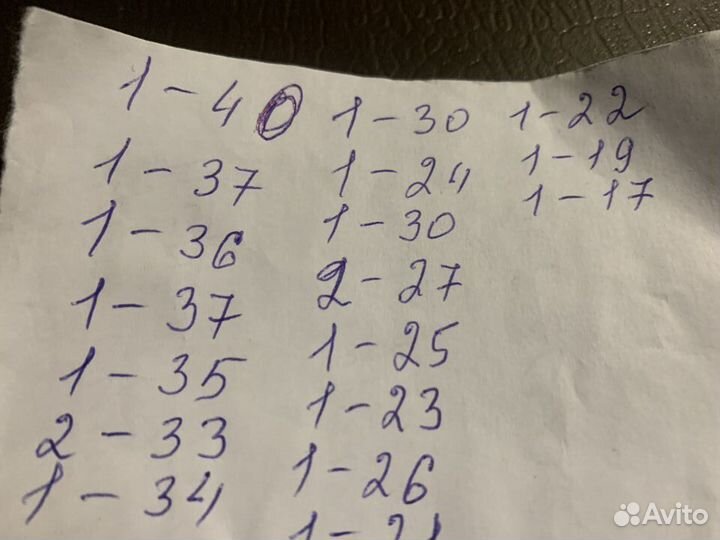 1 - 40
1 - 37
1 - 36
1 - 37
1 - 35
2 - 33
1 - 34
1 - 30
1 - 24
1 - 30
2 - 27
1 - 25
1 - 23
1 - 26
1 - 22
1 - 19
1 - 17
Avito